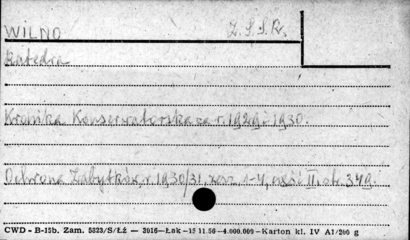 WILNO Z.S.S.R.
Katedra
Kronika Konserwatorska za r. 1929-1930.
Ochrona Zabytków, r. 1930/31, zesz. 1-4, część II, str. 349.
CWD - B-15b. Zam. 5323/S/Łż — 2016 — Łak - 15 11.56 - 4.000.000 - Karton kl. IV A1/200 g